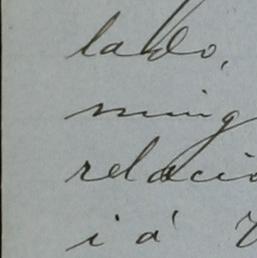 lado,
ning
relacio
i á